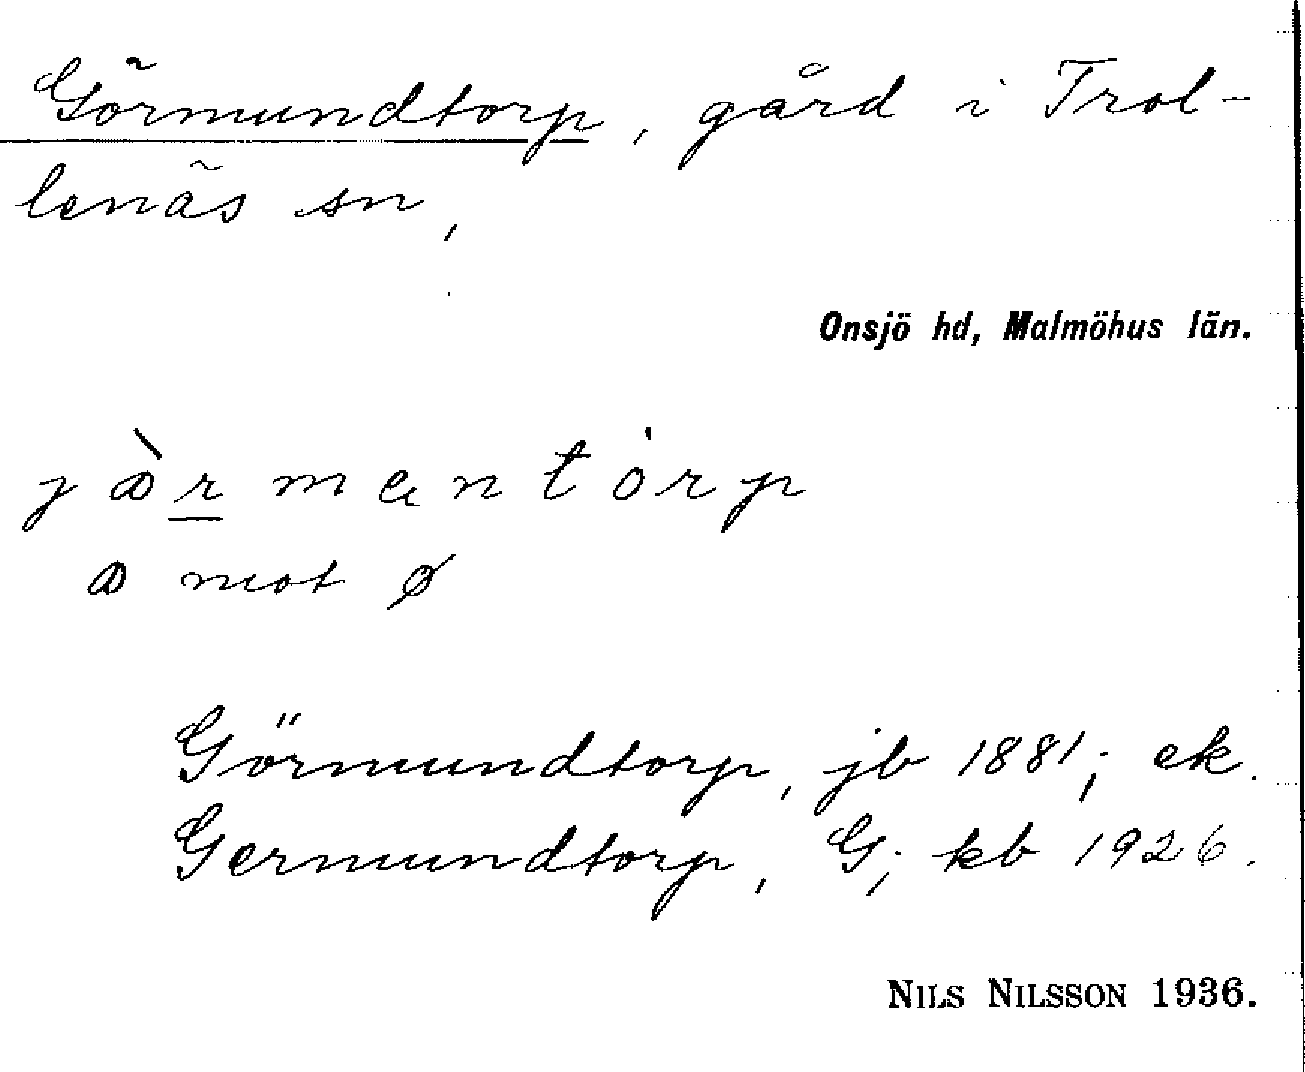 Görmundtorp, gård i Trol-
lenäs sn,
Onsjö hd, Malmöhus län.
Görmundtorp, jb 1881; ek.
Germundtorp, G; kb 1926.
NILS NILSSON 1936.